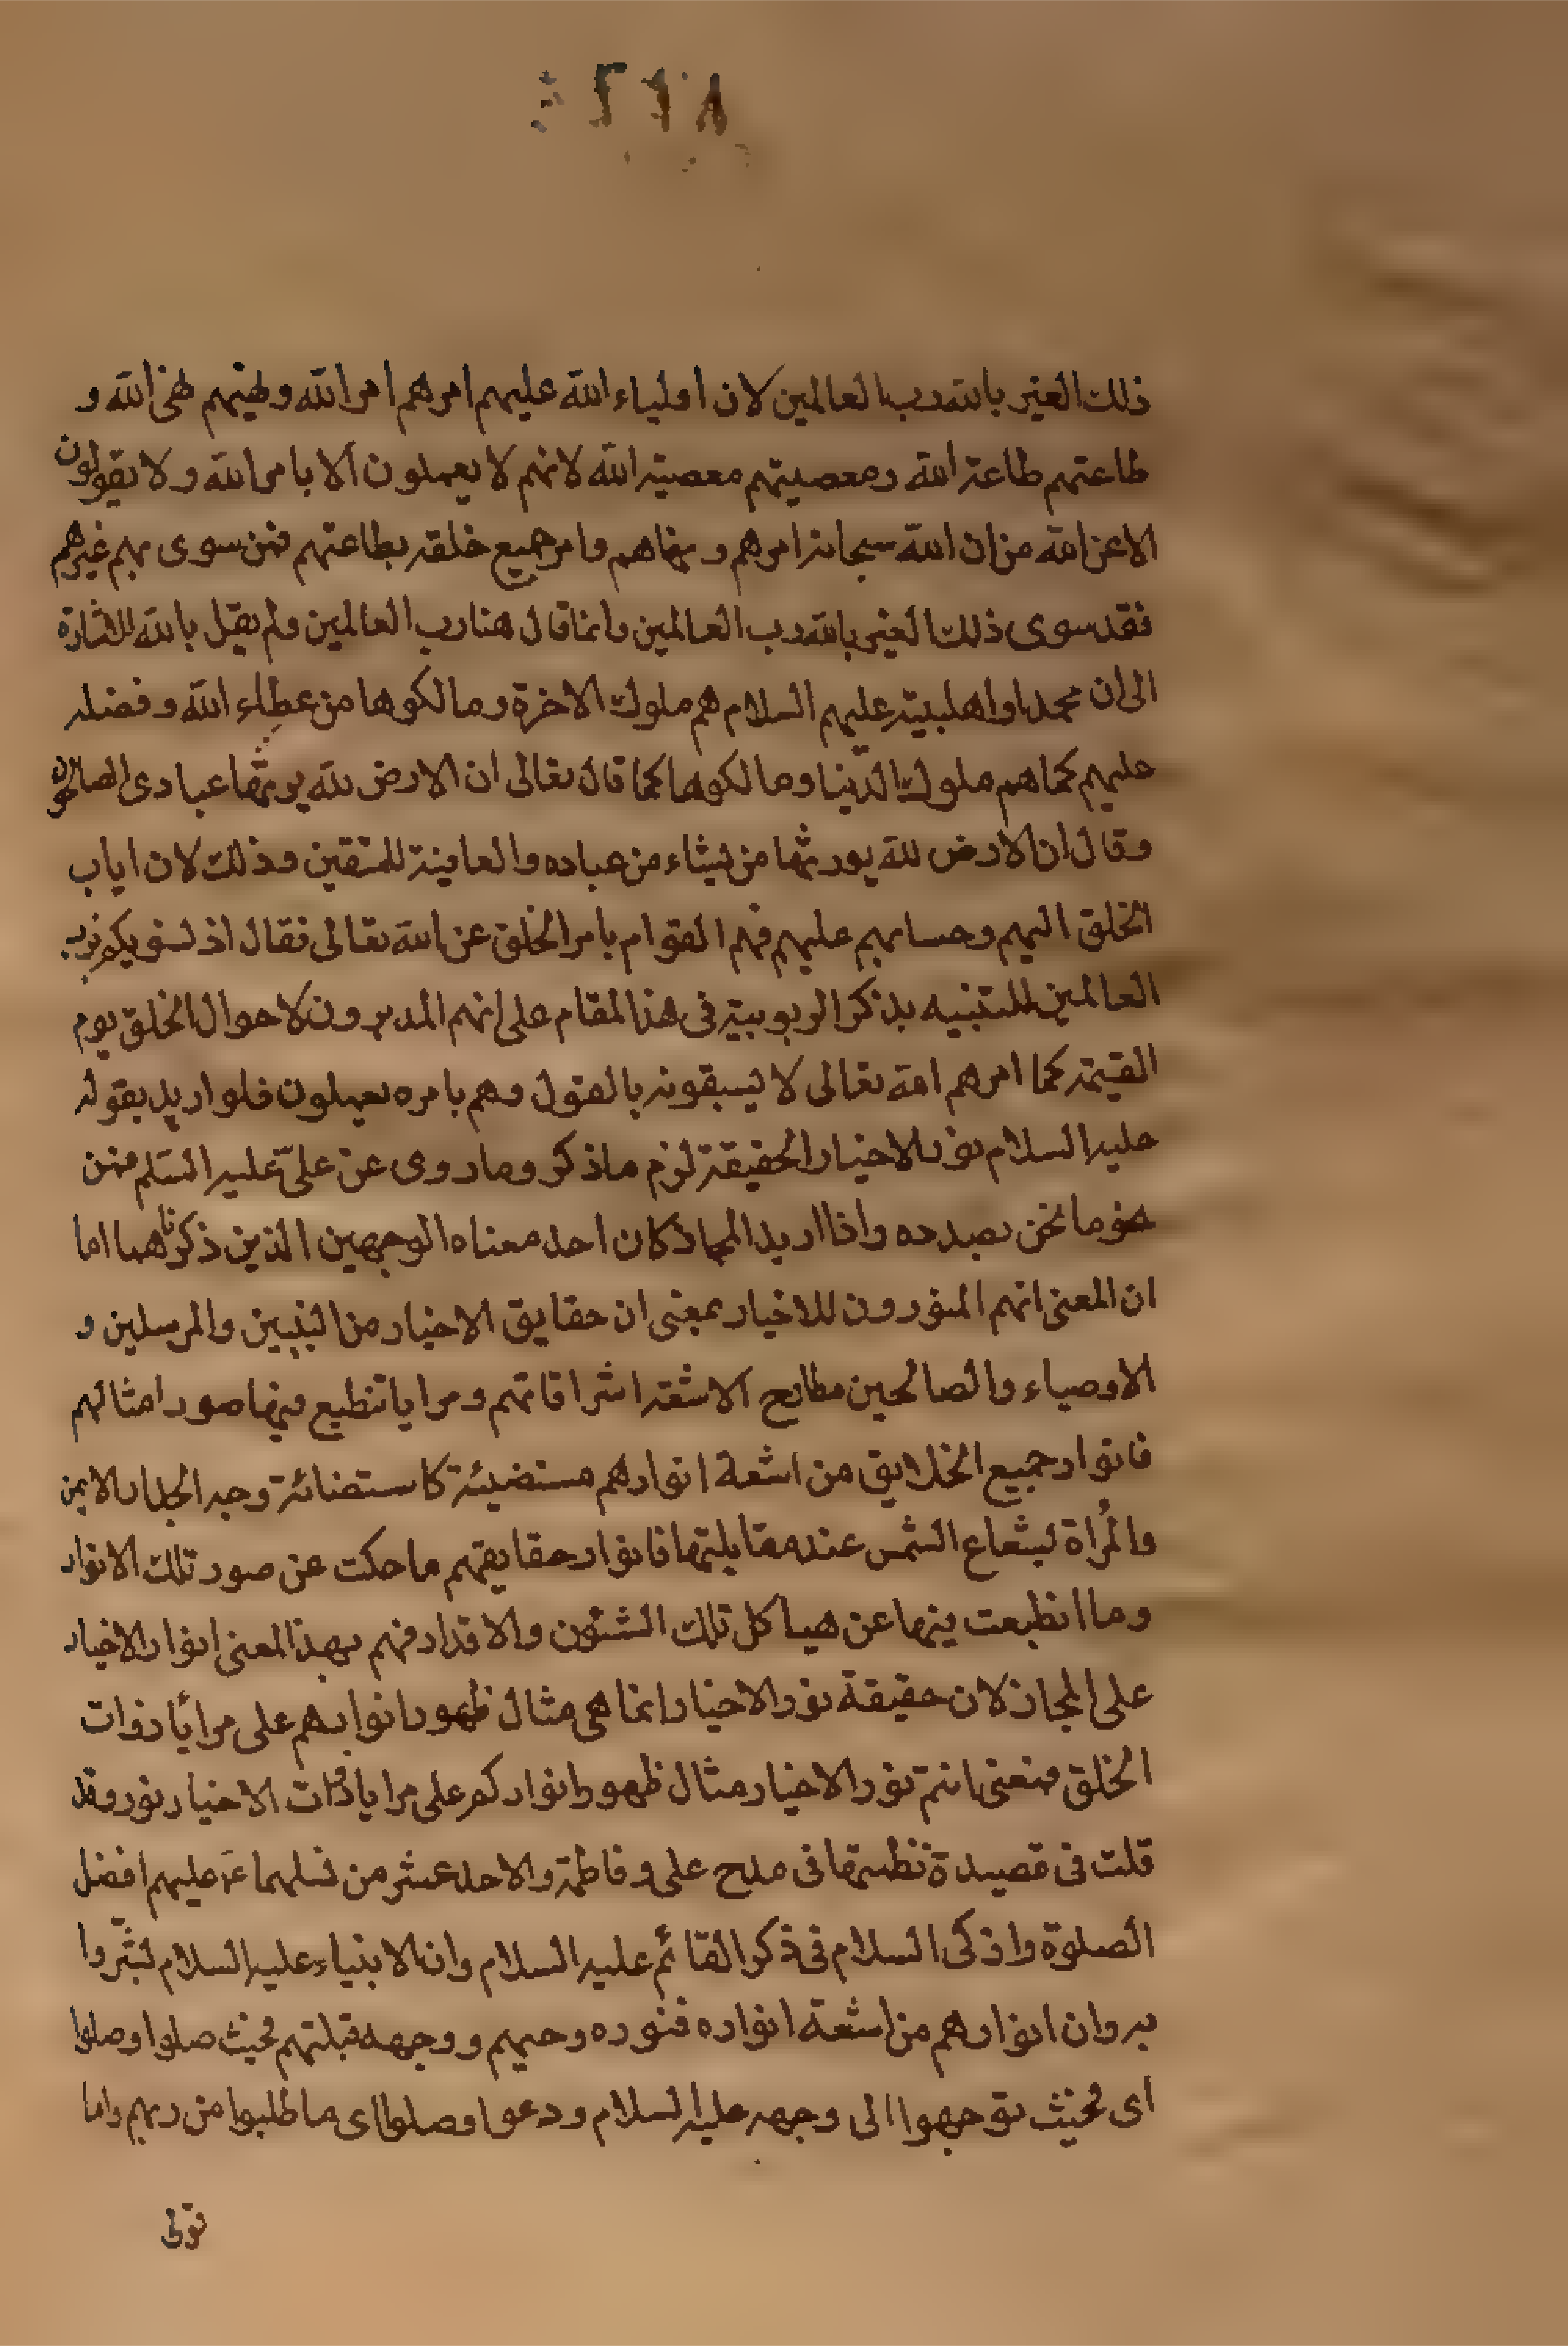 ذلك الغير بالله رب العالمين لان اولياء الله عليهم امرهم امر الله ونهيهم نهى الله و
طاعتهم طاعة الله ومعصيتهم معصية الله لانهم لا يعملون الا بامر الله ولا يقولون
الا عن الله من ان الله سبحانه امرهم ونهاهم وامر جميع خلقه بطاعتهم فمن سوى بهم غيرهم
فقد سوى ذلك الغير بالله رب العالمين وانما قال هنا رب العالمين ولم يقل بالله للاشارة
الى ان محمدا واهلبيته عليهم السلام هم ملوك الاخرة ومالكوها من عطاء الله وفضله
عليهم كما هم ملوك الدّنيا ومالكوها كما قال تعالى ان الارض لله يرثها عبادى الصالحون
وقال ان الارض لله يورثها من يشاء من عباده والعاقبة للمتقين وذلك لان اياب
الخلق اليهم وحسابهم عليهم فهم القوام بامر الخلق عن الله تعالى فقال اذ نسويكم برب
العالمين للتنبيه بذكر الربوبية فى هذا المقام على انهم المدبرون لاحوال الخلق يوم
القيمة كما امرهم الله تعالى لا يسبقونه بالقول وهم بامره يعملون فلو اريد بقوله
عليه السلام نور الاخيار الحقيقة لزم ما ذكر وما روى عن علىّ عليه السّلم فمن
هو ما نحن بصدده واذا اريد المجاز كان احد معناه الوجهين الذين ذكرناهما اما
ان المعنى انهم المنورون للاخيار بمعنى ان حقايق الاخيار من النبيين والمرسلين و
الاوصياء والصالحين مطارح الاشعة اشراقاتهم ومرايا تنطبع فيها صور امثالهم
فانوار جميع الخلايق من اشعة انوارهم مستضيئة كاستضائة وجه الجدار الايمن
والمرُاة لشعاع الشمس عند مقابلتها فانوار حقايقهم ما حكت عن صور تلك الانوار
وما انطبعت فيها عن هياكل تلك الشئون والاقدار فهم بهذا المعنى انوار الاخيار
على المجاز لان حقيقة نور الاخيار انما هى مثال ظهور انوارهم على مرايا ذوات
الخلق فمعنى انتم نور الاخيار مثال ظهور انواركم على مرايا ذوات الاخيار نور وقد
قلت فى قصيدة نظمتها فى مدح على وفاطمة والاحد عشر من نسلهما عليهم افضل
الصلوة وازكى السلام فى ذكر القائم عليه السلام وان الانبياء عليه السلام بشّروا
به وان انوارهم من اشعة انواره فنوره وحيهم ووجهه قبلتهم فحيث صلوا وصلوا
اى فحيث توجهوا الى وجهه عليه السلام ودعوا وصلوا اى ما طلبوا من ربهم واما